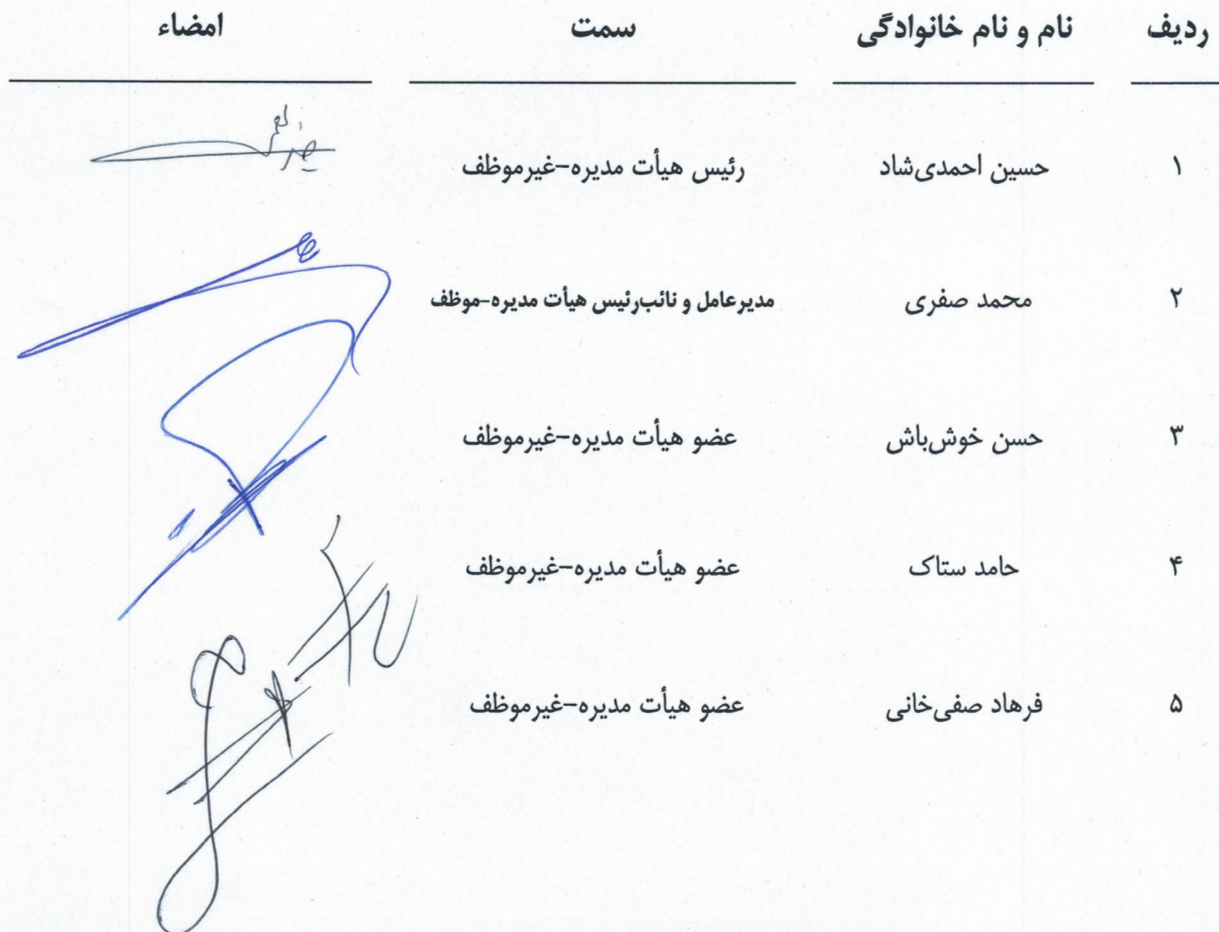 ردیف نام و نام خانوادگی سمت امضاء
۱ حسین احمدی‌شاد رئیس هیأت مدیره-غیرموظف
۲ محمد صفری مدیرعامل و نائب‌رئیس هیأت مدیره-موظف
۳ حسن خوش‌باش عضو هیأت مدیره-غیرموظف
۴ حامد ستاک عضو هیأت مدیره-غیرموظف
۵ فرهاد صفی‌خانی عضو هیأت مدیره-غیرموظف